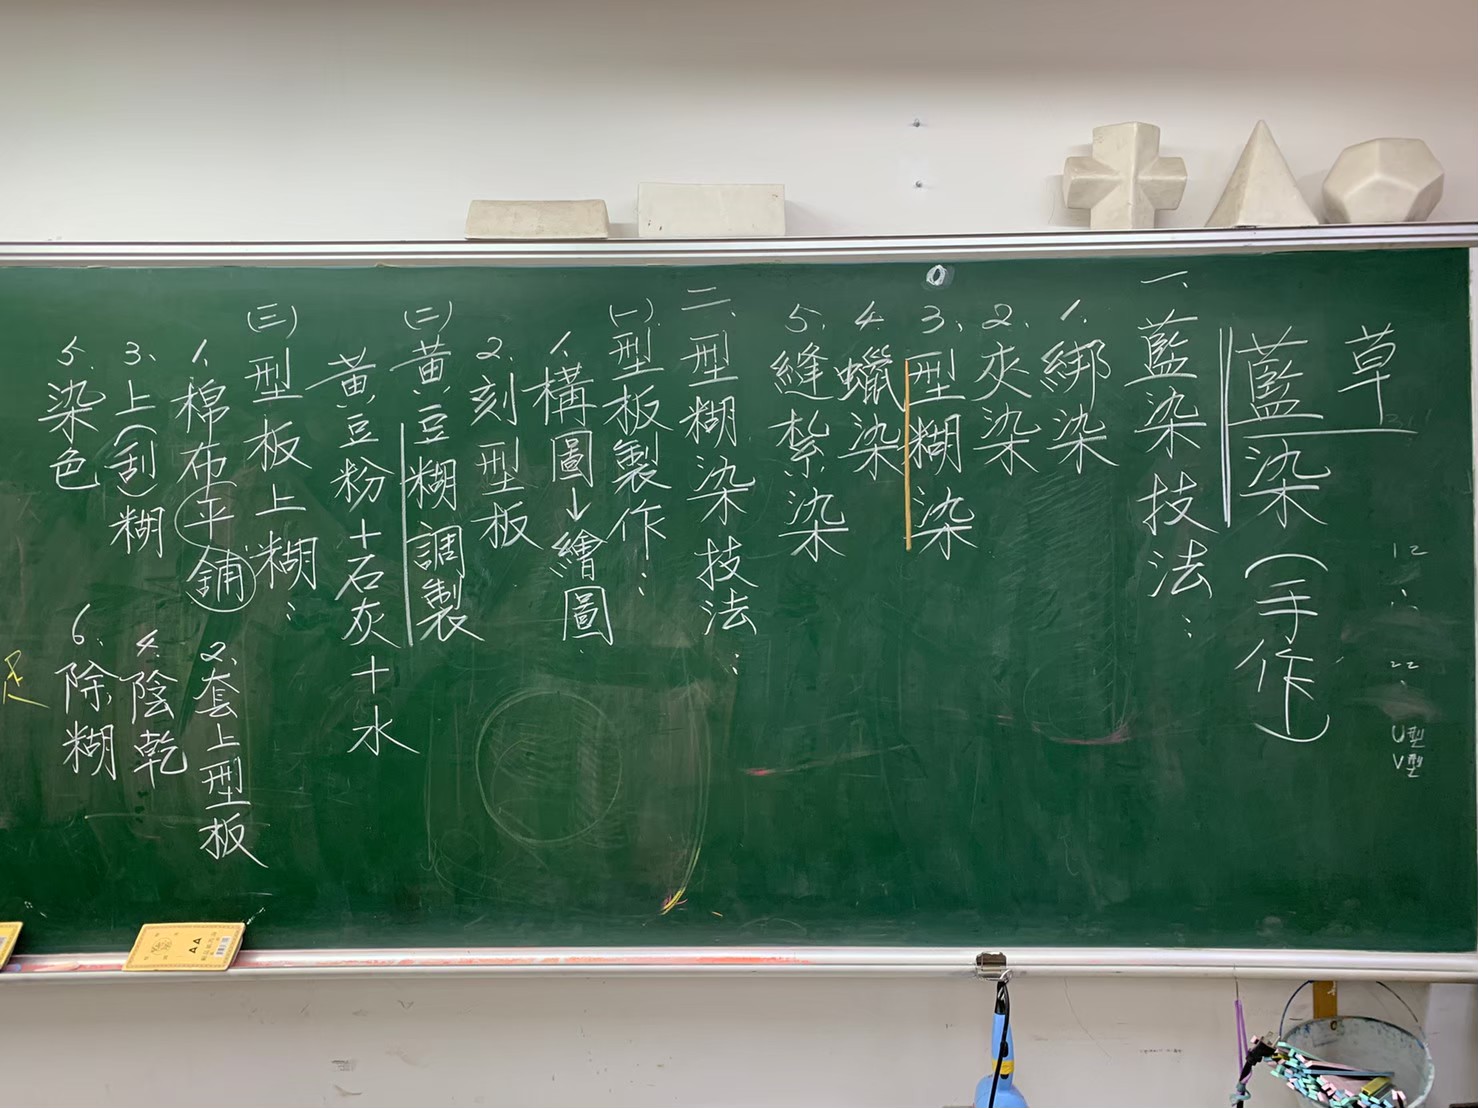 草
藍染(手作)
一、藍染技法:
1、綁染
2、夾染
3、型糊染
4、蠟染
5、縫紮染
二、型糊染技法:
(一)型板製作:
1、構圖↓繪圖
2、刻型板
(二)黃豆糊調製
黃豆粉+石灰+水
(三)型板上糊:
1、棉布平鋪
2、套上型板
3、上(刮)糊
4、陰乾
5、染色
6、除糊
12
22
U型
V型
AA